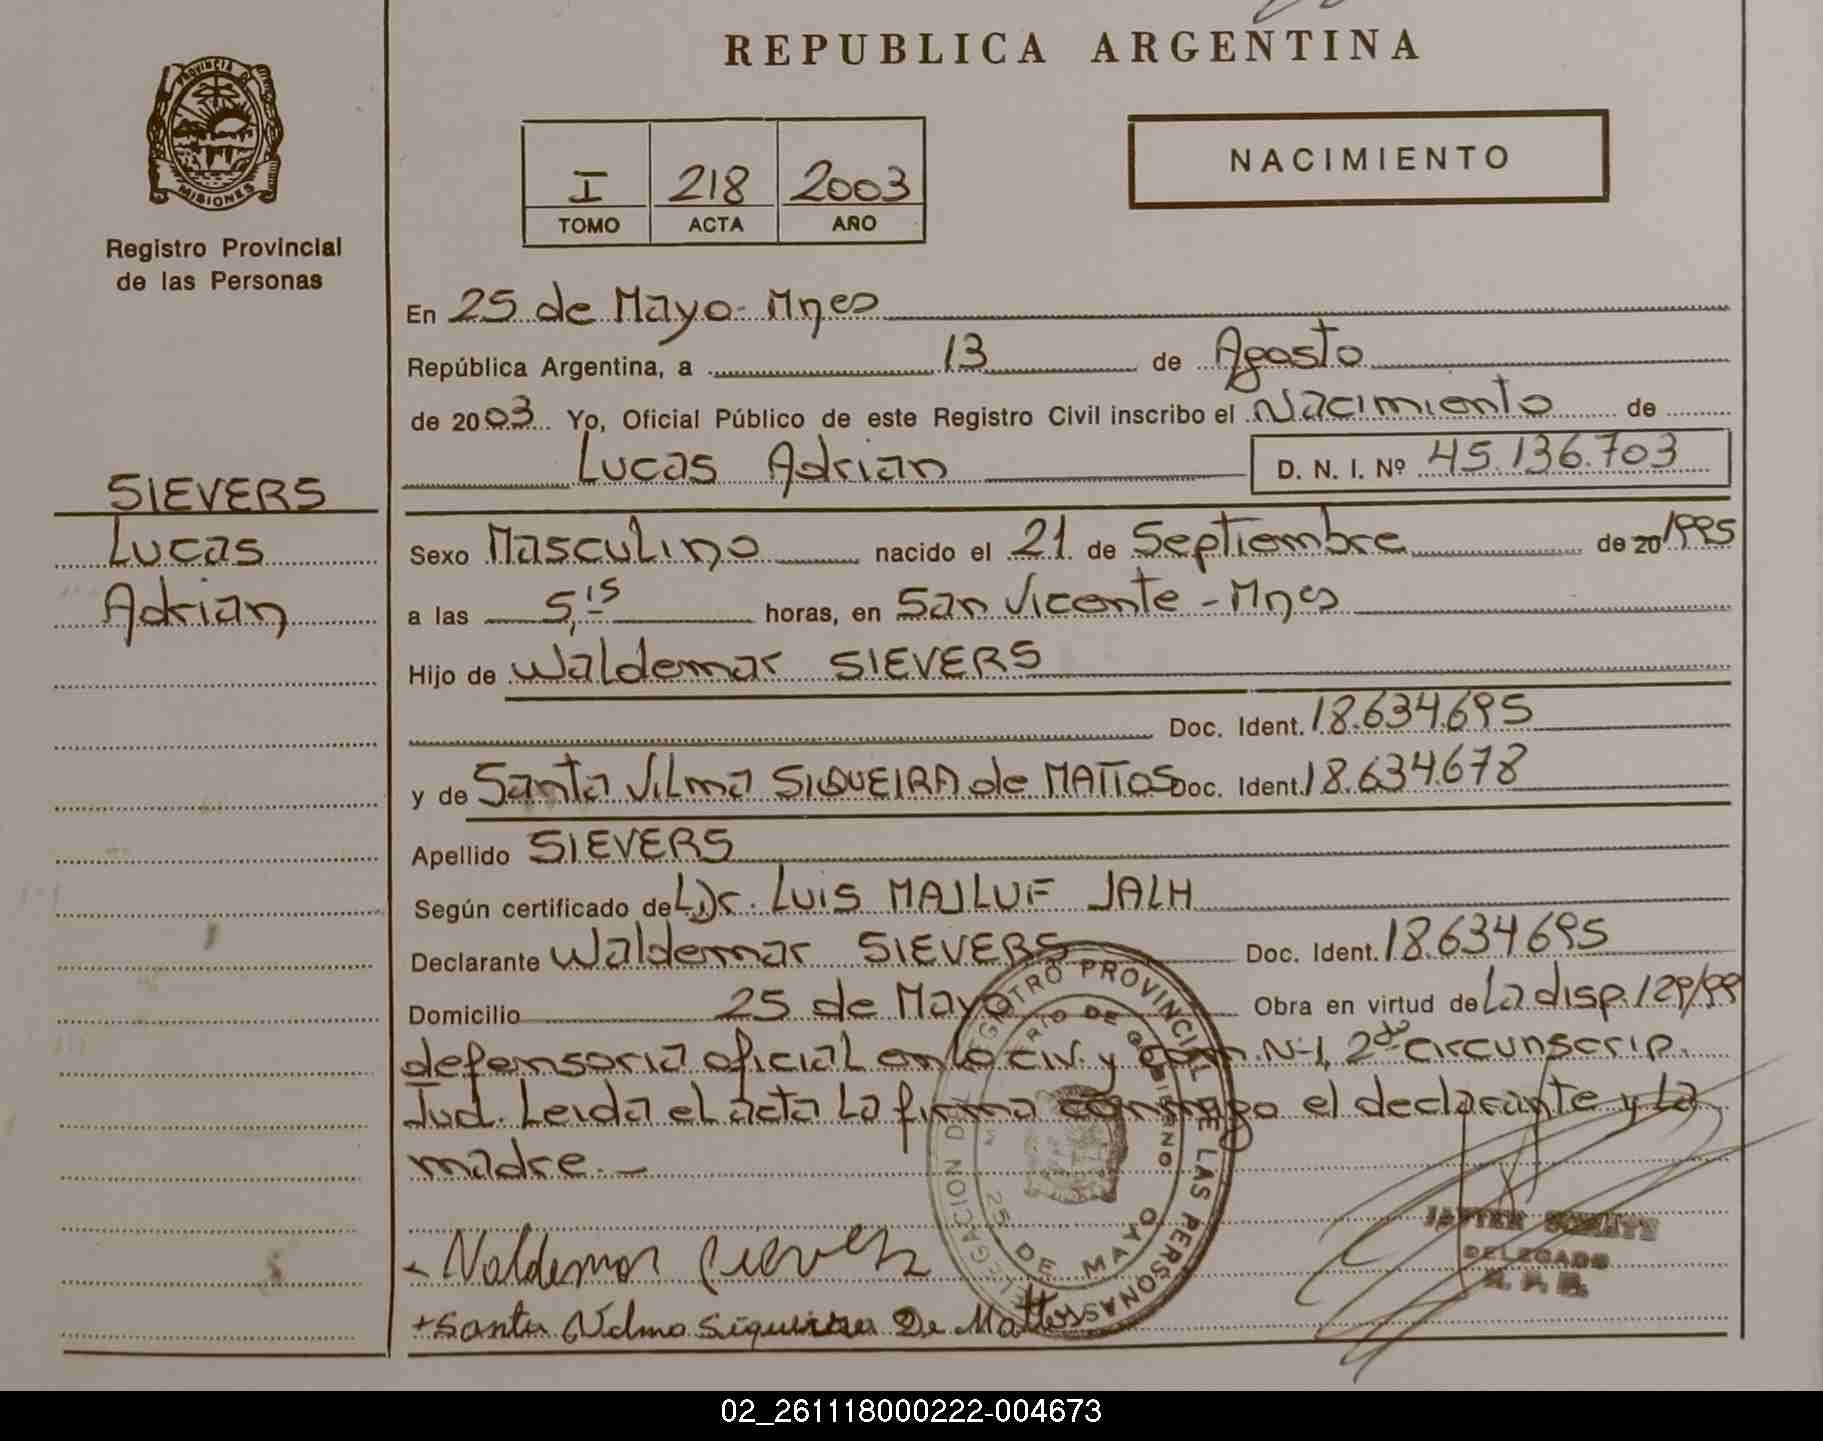 REPUBLICA ARGENTINA
PROVINCIA DE
MISIONES
Registro Provincial
de las Personas
I 218 2003
TOMO ACTA AÑO
NACIMIENTO
En 25 de Mayo - Mnes
República Argentina, a 13 de Agosto
de 2003 Yo, Oficial Público de este Registro Civil inscribo el Nacimiento de
Lucas Adrian D. N. I. Nº 45.136.703
SIEVERS
Lucas
Adrian
Sexo Masculino nacido el 21 de Septiembre de 20 1995
a las 5,15 horas, en San Vicente - Mnes
Hijo de Waldemar SIEVERS
Doc. Ident. 18.634.695
y de Santa Vilma SIQUEIRA de MATTOS Doc. Ident. 18.634.678
Apellido SIEVERS
Según certificado de L Dr. Luis MAJLUF JALH
Declarante Waldemar SIEVERS Doc. Ident. 18.634.695
Domicilio 25 de Mayo Obra en virtud de La disp. 129/99
defensoria oficial en lo civ. y com. N-1, 2da circunscrip.
Jud. Leida el acta la firma conmigo el declarante y La
madre. -
DELEGACION DEL REGISTRO PROVINCIAL DE LAS PERSONAS
DE GOBIERNO
25 DE MAYO
- Valdemar Sievers
+ Santa Vilma Siqueira De Mattos
JAVIER
DELEGADO
R. P. P.
02_261118000222-004673